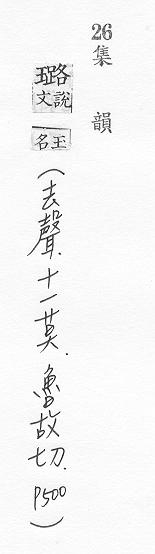 26集韻
璐說文玉名(去聲.十一莫.魯故切.P500)